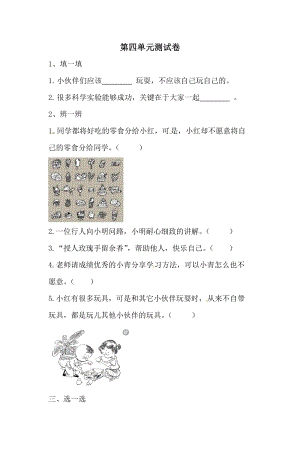 第四单元测试卷
1、填一填
1. 小伙伴们应该________ 玩耍，不应该自己玩自己的。
2. 很多科学实验能够成功，关键在于大家一起________ 。
2、辨一辨
1.同学都将好吃的零食分给小红，可是，小红却不愿意将自
己的零食分给同学。（　　）
2.一位行人向小明问路，小明耐心细致的讲解。（　　）
3.“授人玫瑰手留余香”，帮助他人，快乐自己。（　　）
4.老师请成绩优秀的小青分享学习方法，可以小青怎么也不
愿意。（　　）
5.小红有很多玩具，可是和其它小伙伴玩耍时，从来不自带
玩具，都是玩儿其他小伙伴的玩具。（　　）
三、选一选